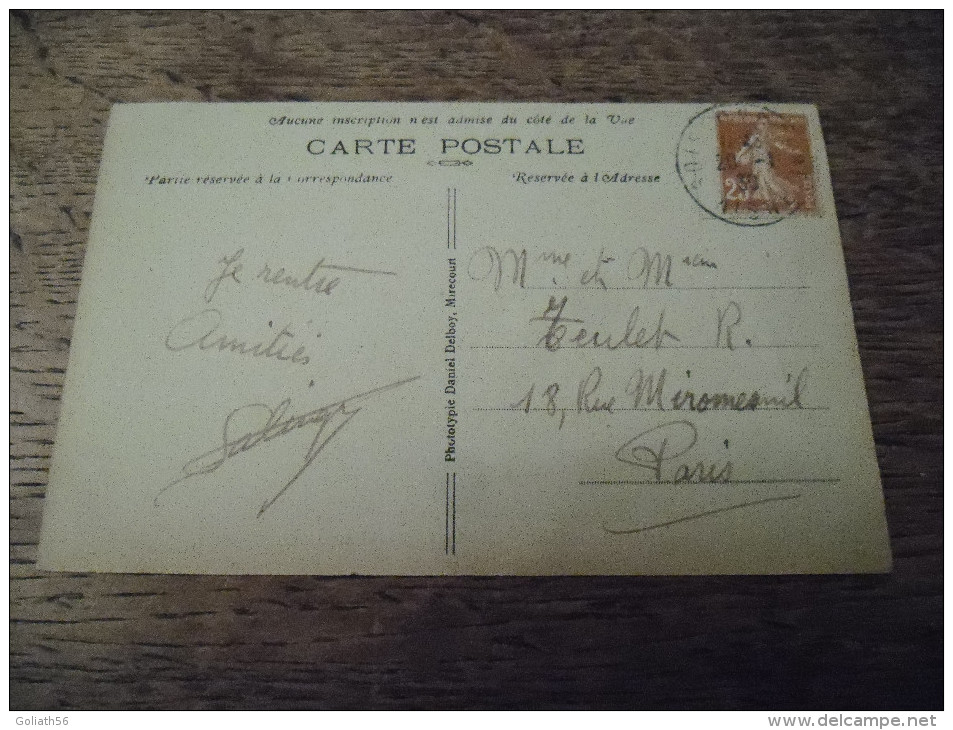 Aucune inscription n'est admise du côté de la Vue
CARTE POSTALE
Partie réservée à la Correspondance
Réservée à l'Adresse
25
Je rentre
Amitiés
Phototypie Daniel Delboy, Mirecourt
Mme et M
Teulet R.
18, Rue Miromesnil
Paris
Goliath56
delcampe.net